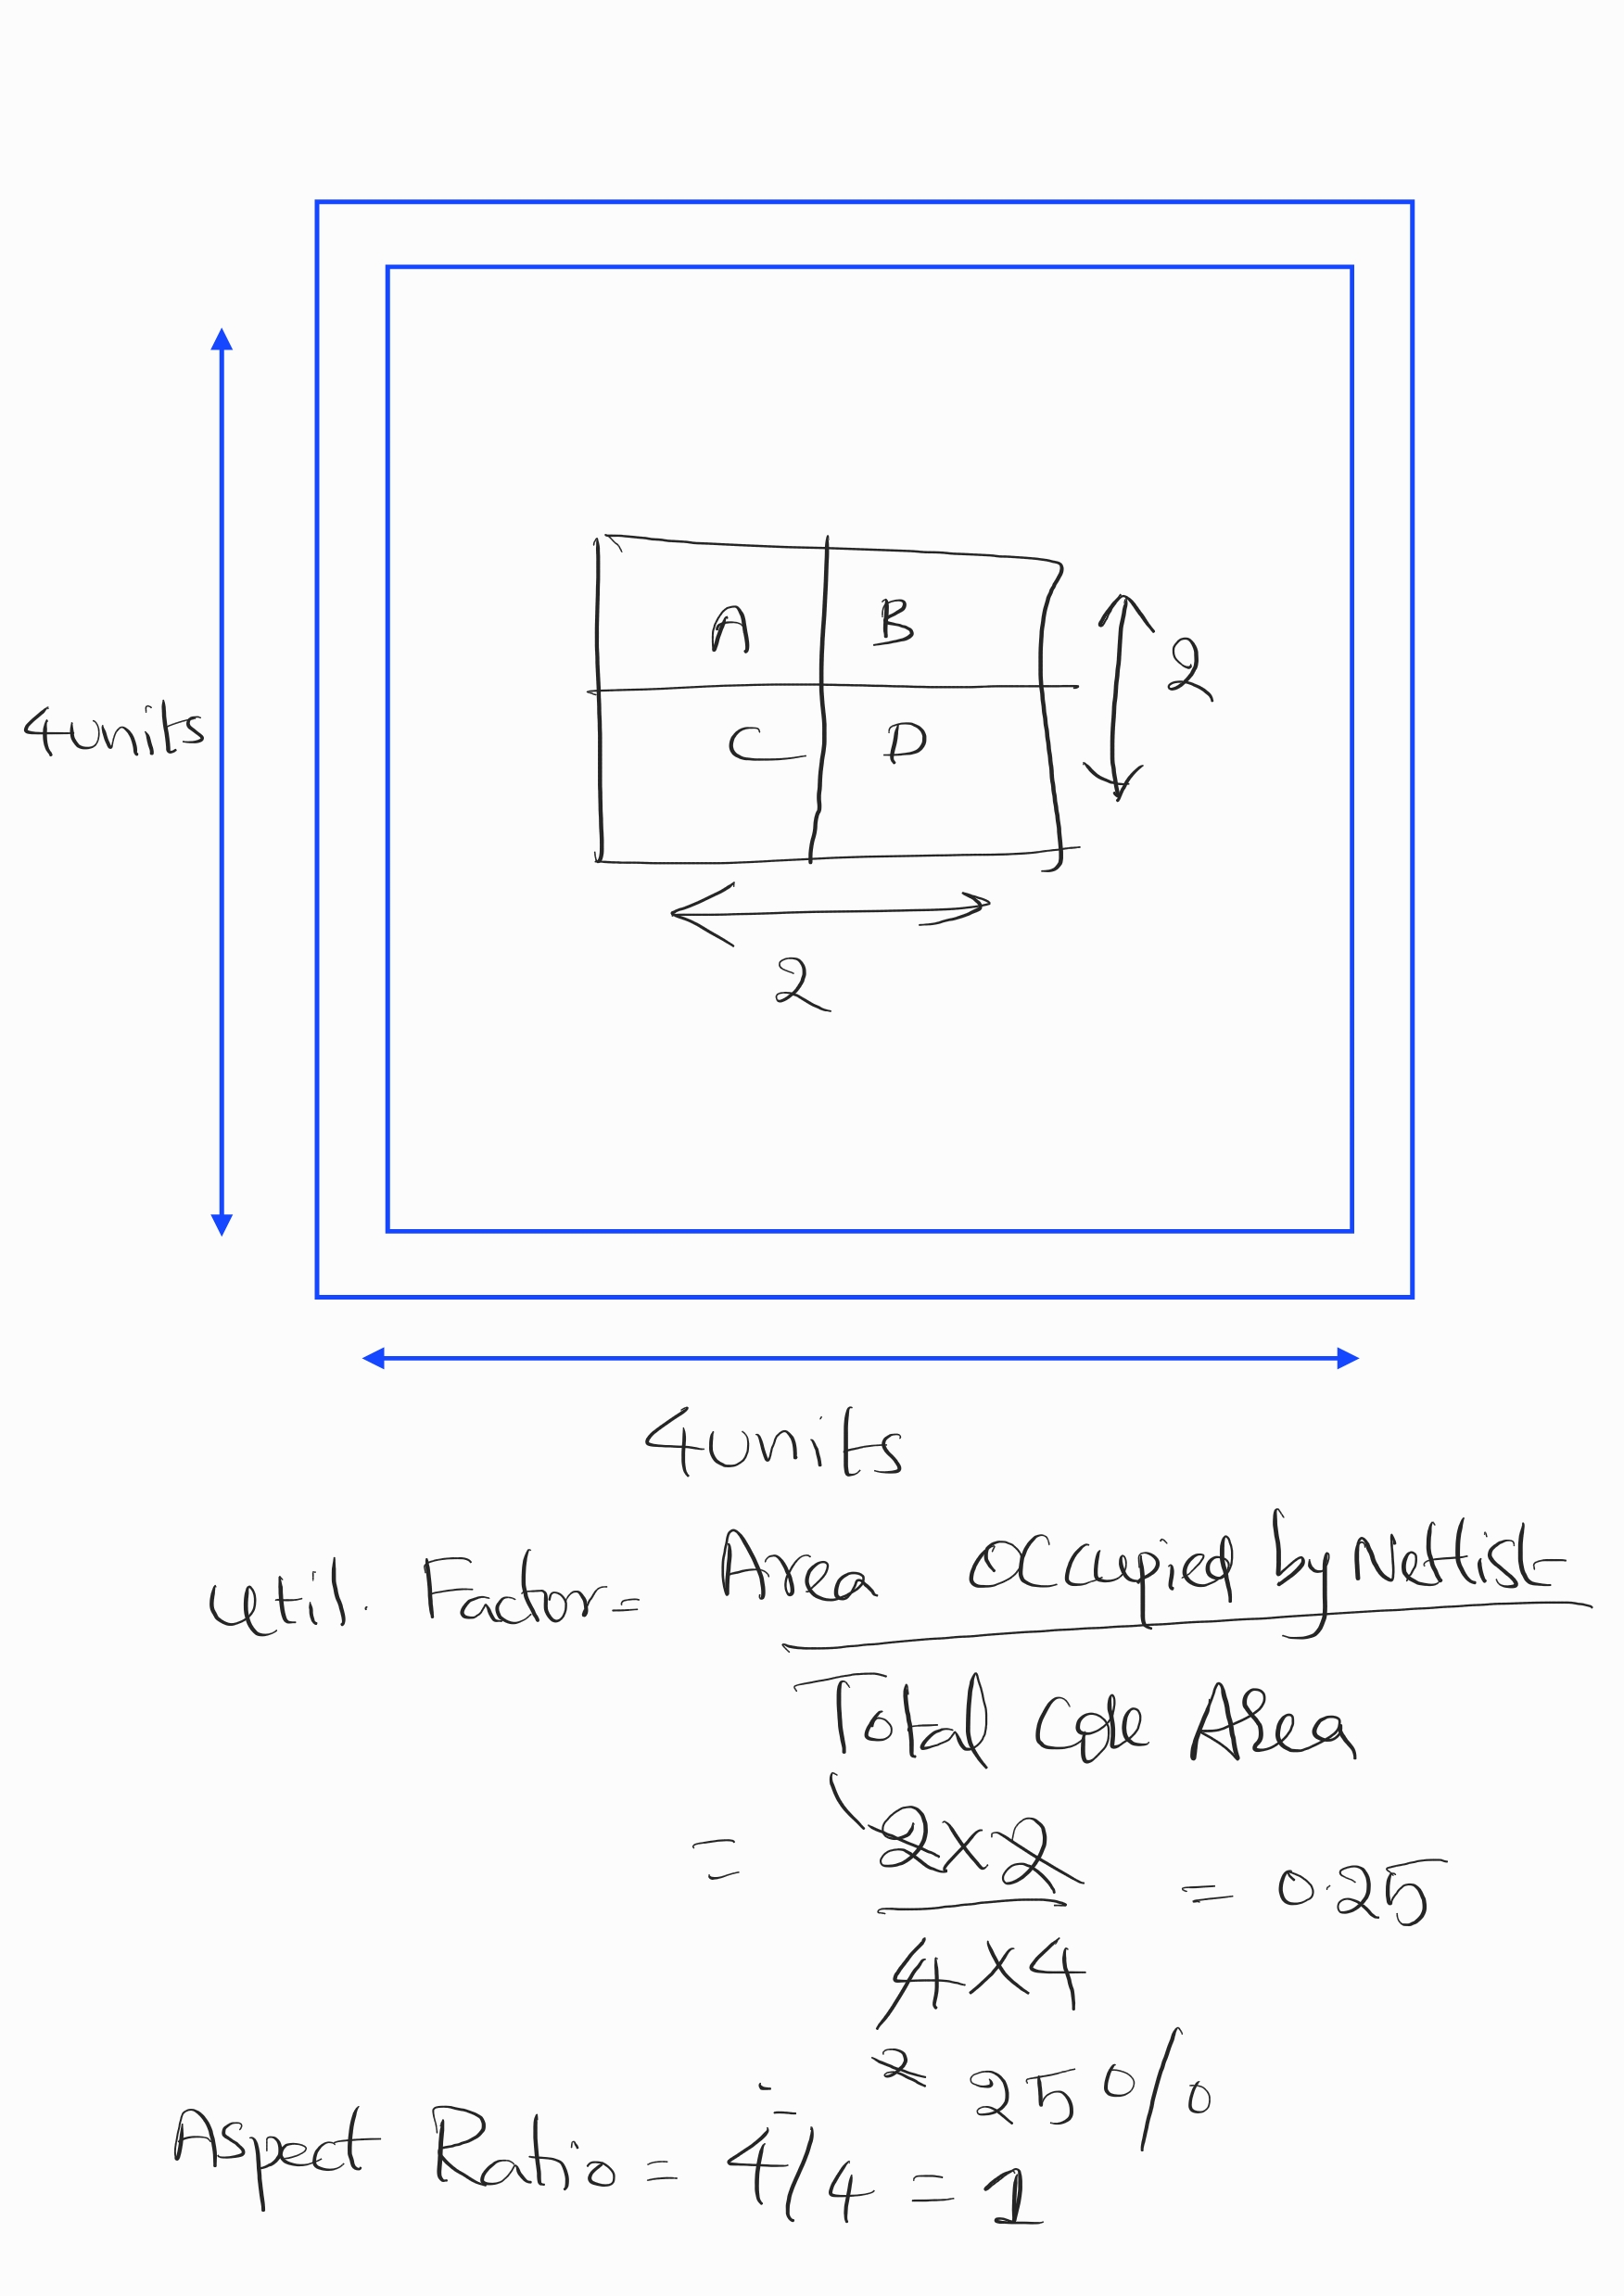 A B
2
4 units
C D
2
4 units
Util. Factor = Area occupied by Netlist
Total Core Area
= 2 X 2 = 0.25
4 X 4
2 25 %
Aspect Ratio = 4/4 = 1